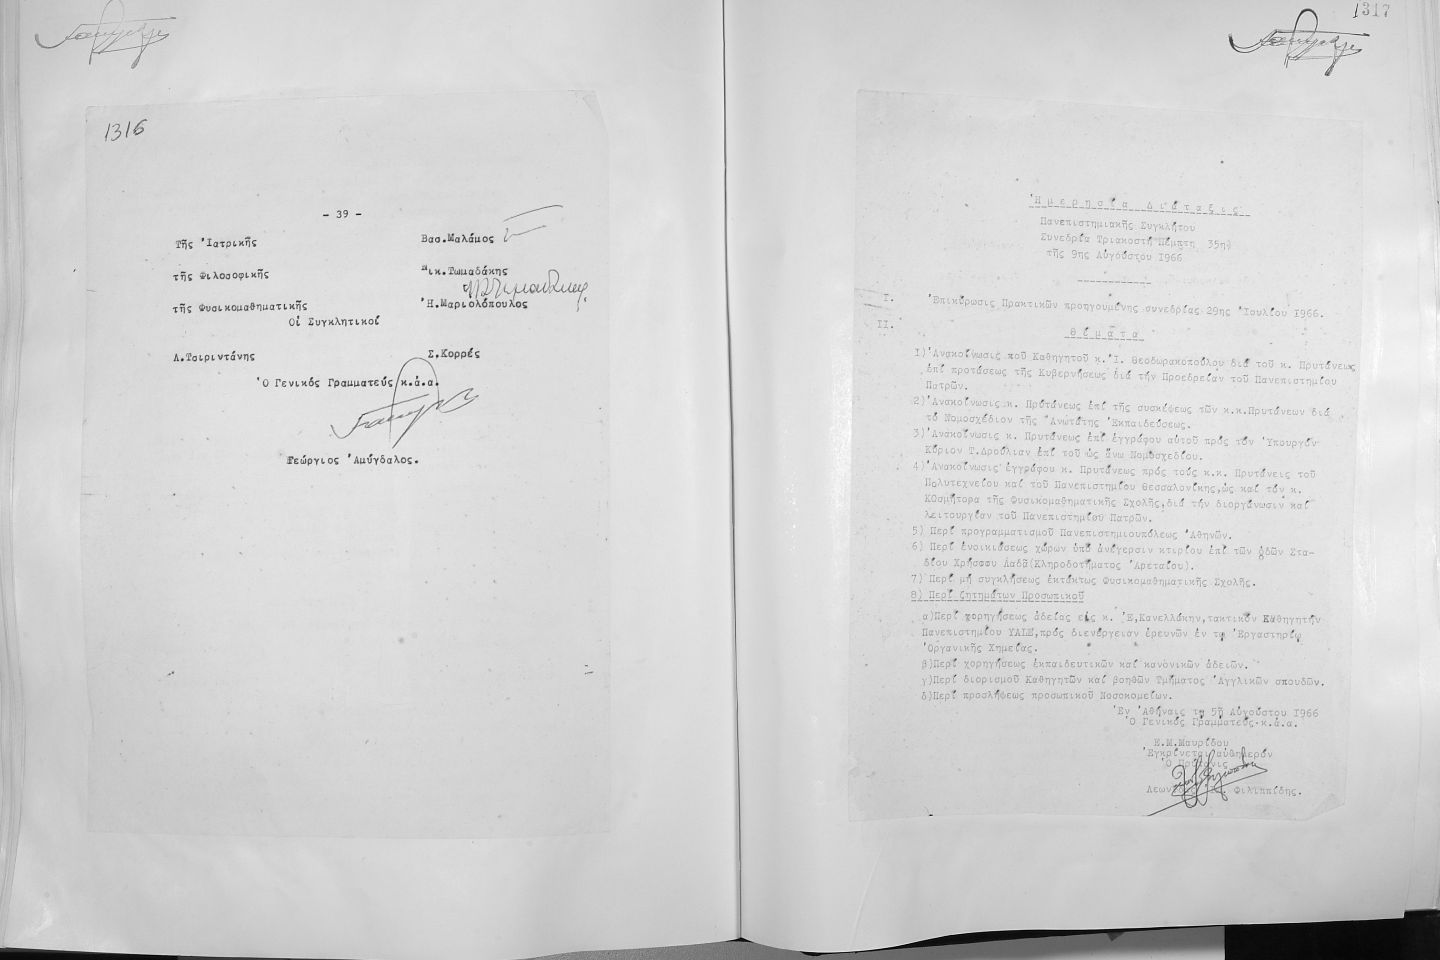 1316
- 39 -
Τῆς Ἰατρικῆς Βασ.Μαλάμος
τῆς Φιλοσοφικῆς Νικ.Τωμαδάκης
τῆς Φυσικομαθηματικῆς Ἠ.Μαριολόπουλος
Οἱ Συγκλητικοί
Λ.Τσιριντάνης Σ.Κορρές
Ὁ Γενικός Γραμματεύς κ.ἀ.α.
Γεώργιος Ἀμύγδαλος.
1317
Ἡμερησία Διάταξις
Πανεπιστημιακῆς Συγκλήτου
Συνεδρία Τριακοστή Πέμπτη 35η
τῆς 9ης Αὐγούστου 1966
I. Ἐπικύρωσις Πρακτικῶν προηγουμένης συνεδρίας 29ης Ἰουλίου 1966.
II.
Θέματα
1)Ἀνακοίνωσις ποῦ Καθηγητοῦ κ.Ἰ. Θεοδωρακοπούλου διά τοῦ κ. Πρυτάνεως
ἐπί προτάσεως τῆς Κυβερνήσεως διά τήν Προεδρείαν τοῦ Πανεπιστημίου
Πατρῶν.
2)Ἀνακοίνωσις κ. Πρυτάνεως ἐπί τῆς συσκέψεως τῶν κ.κ.Πρυτάνεων διά
τό Νομοσχέδιον τῆς Ἀνωτάτης Ἐκπαιδεύσεως.
3)Ἀνακοίνωσις κ. Πρυτάνεως ἐπί ἐγγράφου αὐτοῦ πρός τόν Ὑπουργόν
Κύριον Τ.Δρούλιαν ἐπί τοῦ ὡς ἄνω Νομοσχεδίου.
4)Ἀνακοίνωσις ἐγγράφου κ. Πρυτάνεως πρός τούς κ.κ. Πρυτάνεις τοῦ
Πολυτεχνείου καί τοῦ Πανεπιστημίου Θεσσαλονίκης,ὡς καί τόν κ.
ΚΟσμήτορα τῆς Φυσικομαθηματικῆς Σχολῆς,διά τήν διοργάνωσιν καί
λειτουργίαν τοῦ Πανεπιστημίου Πατρῶν.
5) Περί προγραμματισμοῦ Πανεπιστημιουπόλεως Ἀθηνῶν.
6) Περί ἐνοικιάσεως χώρων ὑπό ἀνέγερσιν κτιρίου ἐπί τῶν ὁδῶν Στα-
δίου Χρήστου Λαδᾶ(Κληροδοτήματος Ἀρεταίου).
7) Περί μή συγκλήσεως ἐκτάκτως Φυσικομαθηματικῆς Σχολῆς.
8) Περί ζητημάτων Προσωπικοῦ
α)Περί χορηγήσεως ἀδείας εἰς κ. Ἐ,Κανελλάκην,τακτικόν Καθηγητήν
Πανεπιστημίου YALE,πρός διενέργειαν ἐρευνῶν ἐν τῷ Ἐργαστηρίῳ
Ὀργανικῆς Χημείας.
β)Περί χορηγήσεως ἐκπαιδευτικῶν καί κανονικῶν ἀδειῶν.
γ)Περί διορισμοῦ Καθηγητῶν καί βοηθῶν Τμήματος Ἀγγλικῶν σπουδῶν.
δ)Περί προσλήψεως προσωπικοῦ Νοσοκομείων.
Ἐν Ἀθήναις τῇ 5ῃ Αὐγούστου 1966
Ὁ Γενικός Γραμματεύς κ.ἀ.α.
Ε.Μ.Μαυρίδου
Ἐγκρίνεται αὐθημερόν
Ὁ Πρύτανις
Φιλιππίδης.